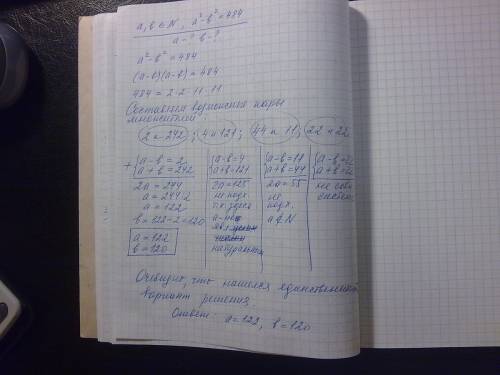 a, b ∈ N, a² - b² = 484
a - ? b - ?
a² - b² = 484
(a-b)(a-b) = 484
484 = 2·2·11·11
Составим возможные пары
множителей
2 и 242; 4 и 121; 44 и 11; 22 и 22
+ { a - b = 2
a + b = 242
2a = 244
a = 244:2
a = 122
b = 122-2 = 120
a = 122
b = 120
{ a-b=4
a+b=121
2a = 125
не подх.
т.к. здесь
a - не
натуральным
{ a-b=11
a+b=44
2a = 55
не
подх.
a ∉ N
{ a-b=22
a+b=22
не
Очевидно, что нашелся единственный
вариант решения.
Ответ: a = 122, b = 120